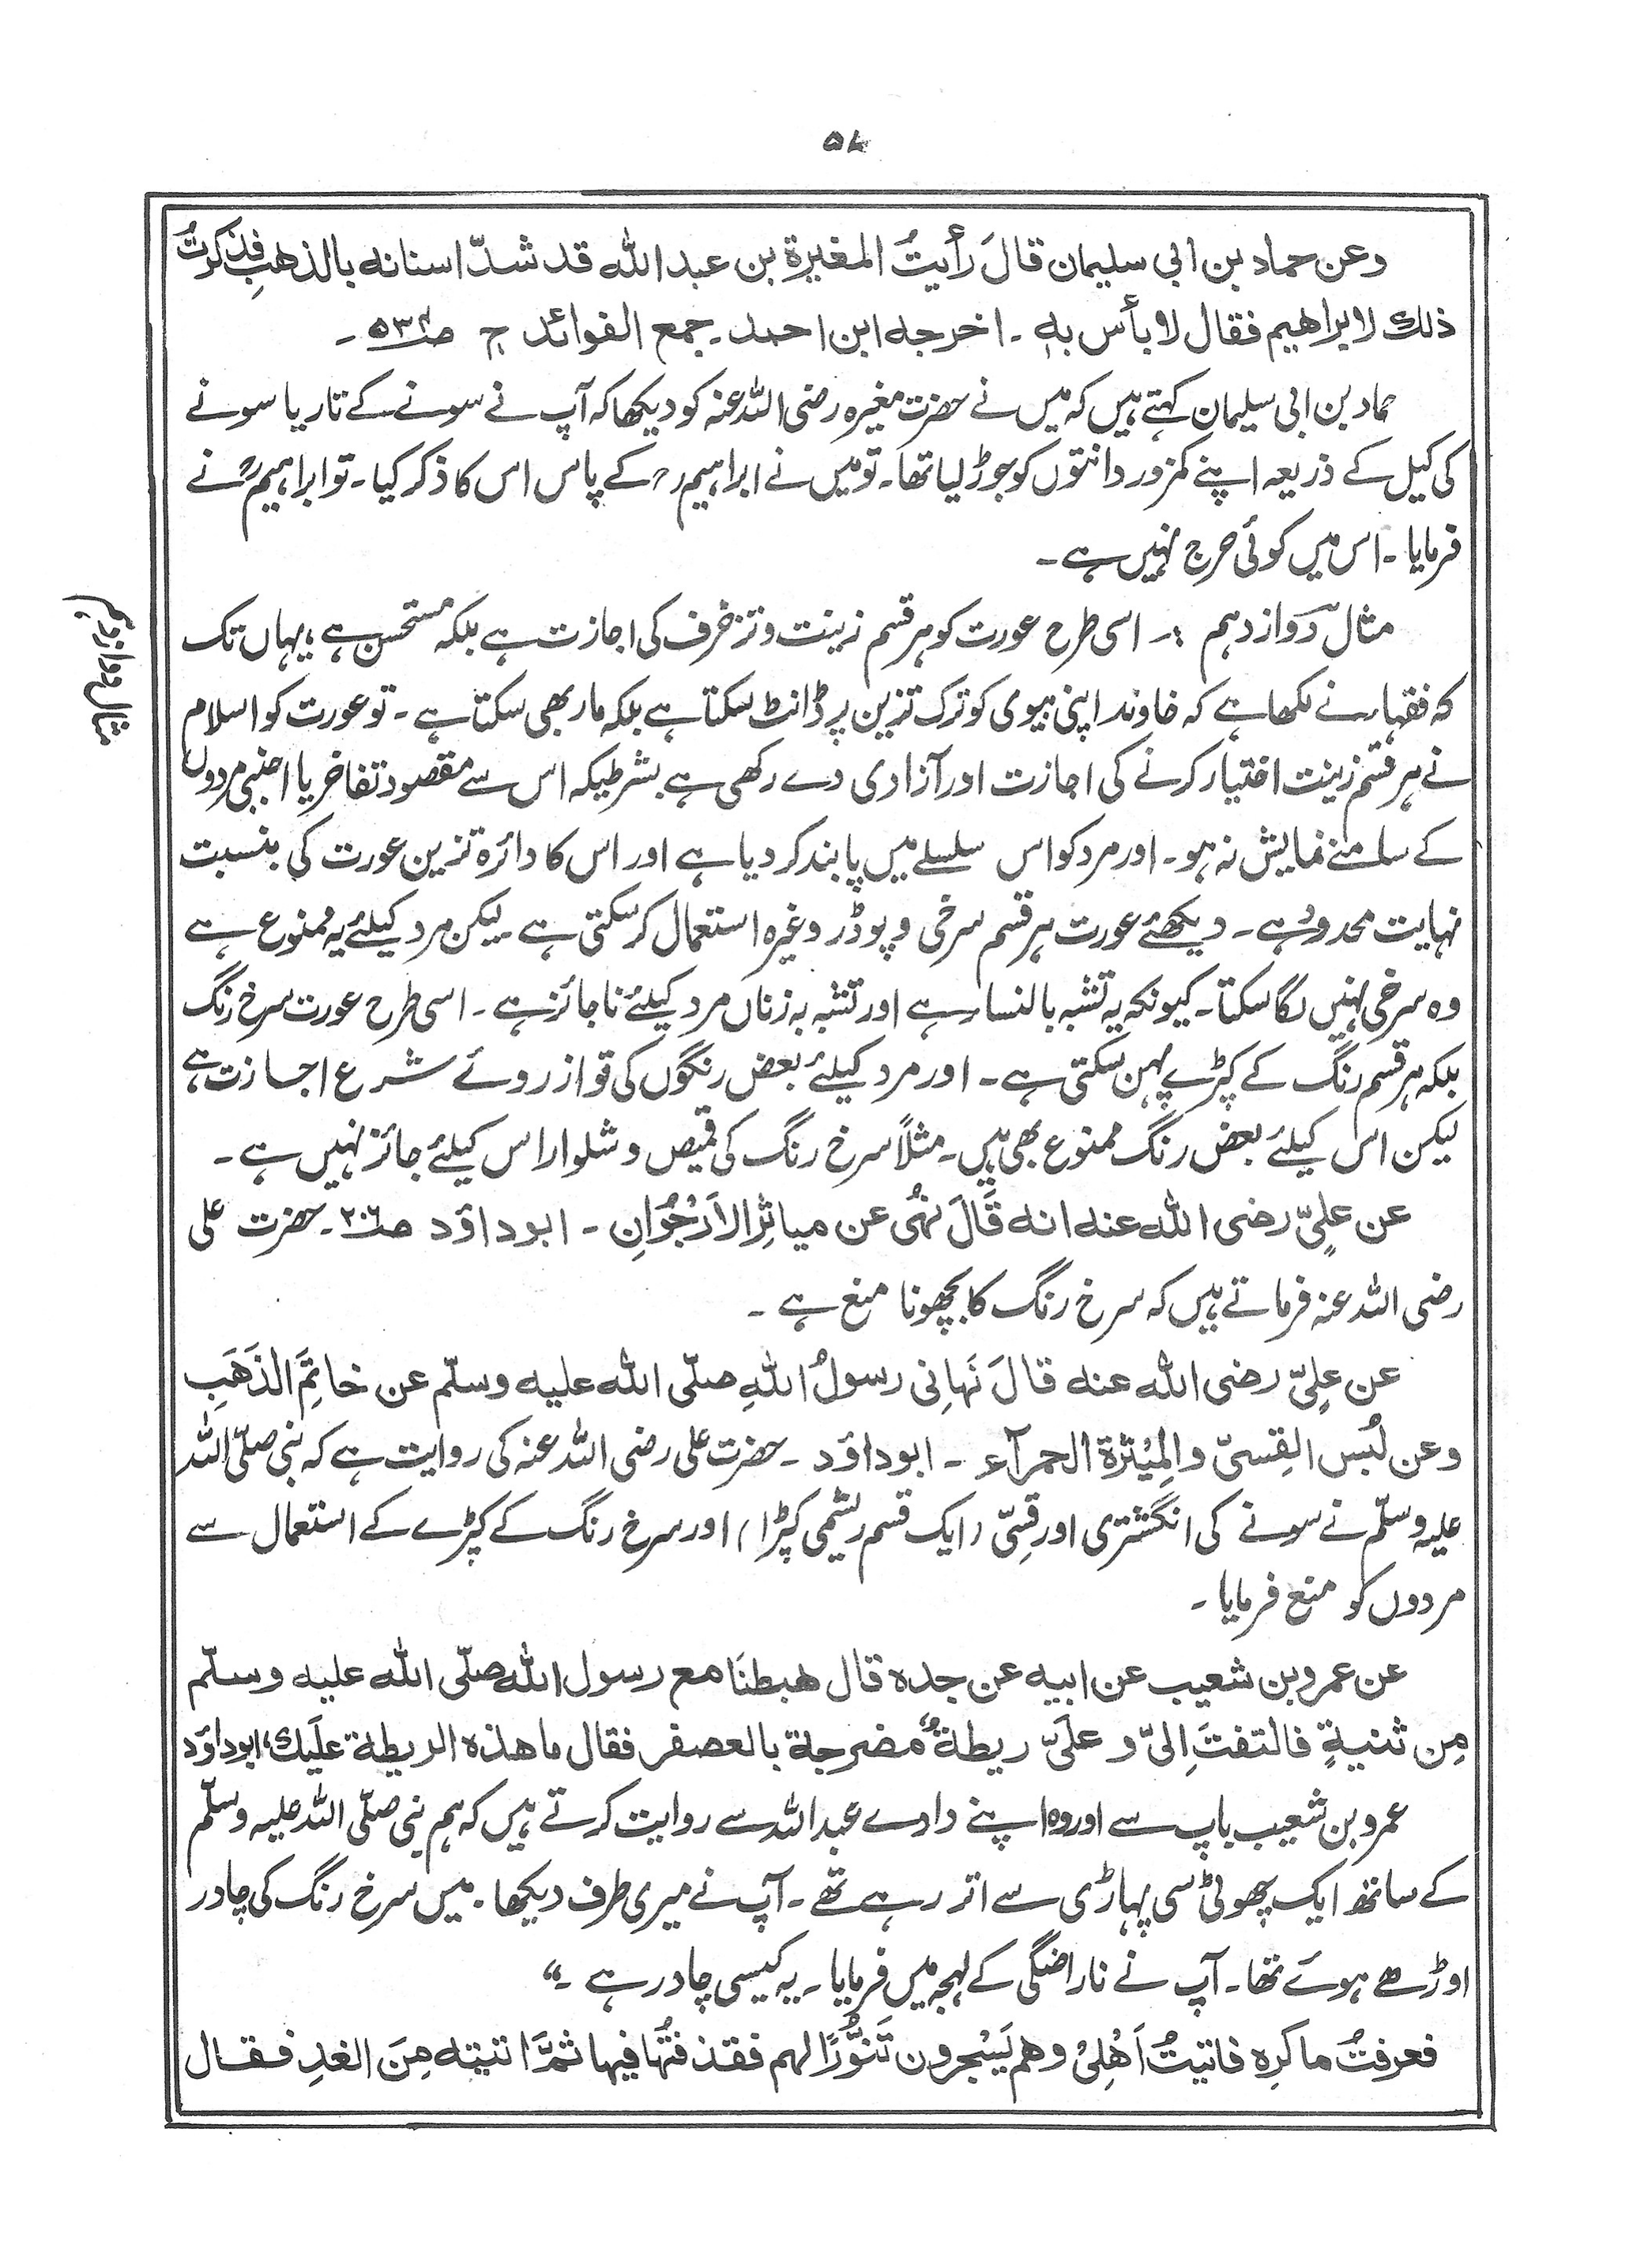 ۵۸
وعن حماد بن ابی سلیمان قالَ رأیتُ المغیرة بن عبد اللّٰه قد شدّ اسنانه بالذهبِ فذکرتُ
ذلك لابراهیم فقال لا بأس بهٖ ۔ اخرجه ابن احمد ۔ جمع الفوائد ج ص ۔
حماد بن ابی سلیمان کہتے ہیں کہ میں نے حضرت مغیرہ رضی اللہ عنہ کو دیکھا کہ آپ نے سونے کے تار یا سونے
کی کیل کے ذریعہ اپنے کمزور دانتوں کو جوڑ لیا تھا۔ تو میں نے ابراہیمؒ کے پاس اس کا ذکر کیا۔ تو ابراہیمؒ نے
فرمایا ۔ اس میں کوئی حرج نہیں ہے ۔
مثال دوازدہم :۔ اسی طرح عورت کو ہر قسم زینت و تزخرف کی اجازت ہے بلکہ مستحسن ہے ؛ یہاں تک
مثال دوازدہم
کہ فقہاء نے لکھا ہے کہ خاوند اپنی بیوی کو ترک تزین پر ڈانٹ سکتا ہے بلکہ مار بھی سکتا ہے ۔ تو عورت کو اسلام
نے ہر قسم زینت اختیار کرنے کی اجازت اور آزادی دے رکھی ہے بشرطیکہ اس سے مقصود تفاخر یا اجنبی مردوں
کے سامنے نمایش نہ ہو ۔ اور مرد کو اس سلسلے میں پابند کر دیا ہے اور اس کا دائرہ تزین عورت کی بنسبت
نہایت محدود ہے ۔ دیکھئے عورت ہر قسم سرخی و پوڈر وغیرہ استعمال کر سکتی ہے ۔ لیکن مرد کیلئے یہ ممنوع ہے
وہ سرخی نہیں لگا سکتا ۔ کیونکہ یہ تشبہ بالنساء ہے اور تشبہ بہ زناں مرد کیلئے ناجائز ہے ۔ اسی طرح عورت سرخ رنگ
بلکہ ہر قسم رنگ کے کپڑے پہن سکتی ہے ۔ اور مرد کیلئے بعض رنگوں کی تو از روئے شرع اجازت ہے
لیکن اس کیلئے بعض رنگ ممنوع بھی ہیں ۔ مثلاً سرخ رنگ کی قمیص و شلوار اس کیلئے جائز نہیں ہے ۔
عن علیٍّ رضی اللّٰه عنه انه قَالَ نهُی عن میاثِر الاَرْجُوَانِ ۔ ابوداؤد ص۲۰۶ ۔ حضرت علی
رضی اللہ عنہ فرماتے ہیں کہ سرخ رنگ کا بچھونا منع ہے ۔
عن علیٍّ رضی اللّٰه عنه قالَ نَهانِی رسولُ اللّٰهِ صلّی اللّٰه علیه وسلّم عن خاتِمَ الذَهَبِ
وعن لُبس القِسیّ والمِیْثرة الحمرآء ۔ ابوداؤد ۔ حضرت علی رضی اللہ عنہ کی روایت ہے کہ نبی صلّی اللہ
علیہ وسلّم نے سونے کی انگشتری اور قِسیّ (ایک قسم ریشمی کپڑا) اور سرخ رنگ کے کپڑے کے استعمال سے
مردوں کو منع فرمایا ۔
عن عمرو بن شعیب عن ابیه عن جدہ قال هبطنَا مع رسول اللّٰه صلّی اللّٰه علیه وسلّم
مِن ثنیةٍ فالتفتَ اِلیّ و علَیّ ریطةٌ مضرجة بالعصفر فقال ما هذه الریطة علَیك، ابوداؤد
عمرو بن شعیب باپ سے اور وہ اپنے دادے عبد اللہ سے روایت کرتے ہیں کہ ہم نبی صلّی اللہ علیہ وسلّم
کے ساتھ ایک چھوٹی سی پہاڑی سے اتر رہے تھے ۔ آپ نے میری طرف دیکھا ۔ میں سرخ رنگ کی چادر
اوڑھے ہوئے تھا ۔ آپ نے ناراضگی کے لہجہ میں فرمایا ۔ یہ کیسی چادر ہے ۔“
فعرفتُ ما کرِہ فاتیتُ اَهْلِیْ وهم یَسْجرون تَنّوُرًا لهم فقذفتُها فیها ثمّ اتیته مِنَ الغدِ فقال